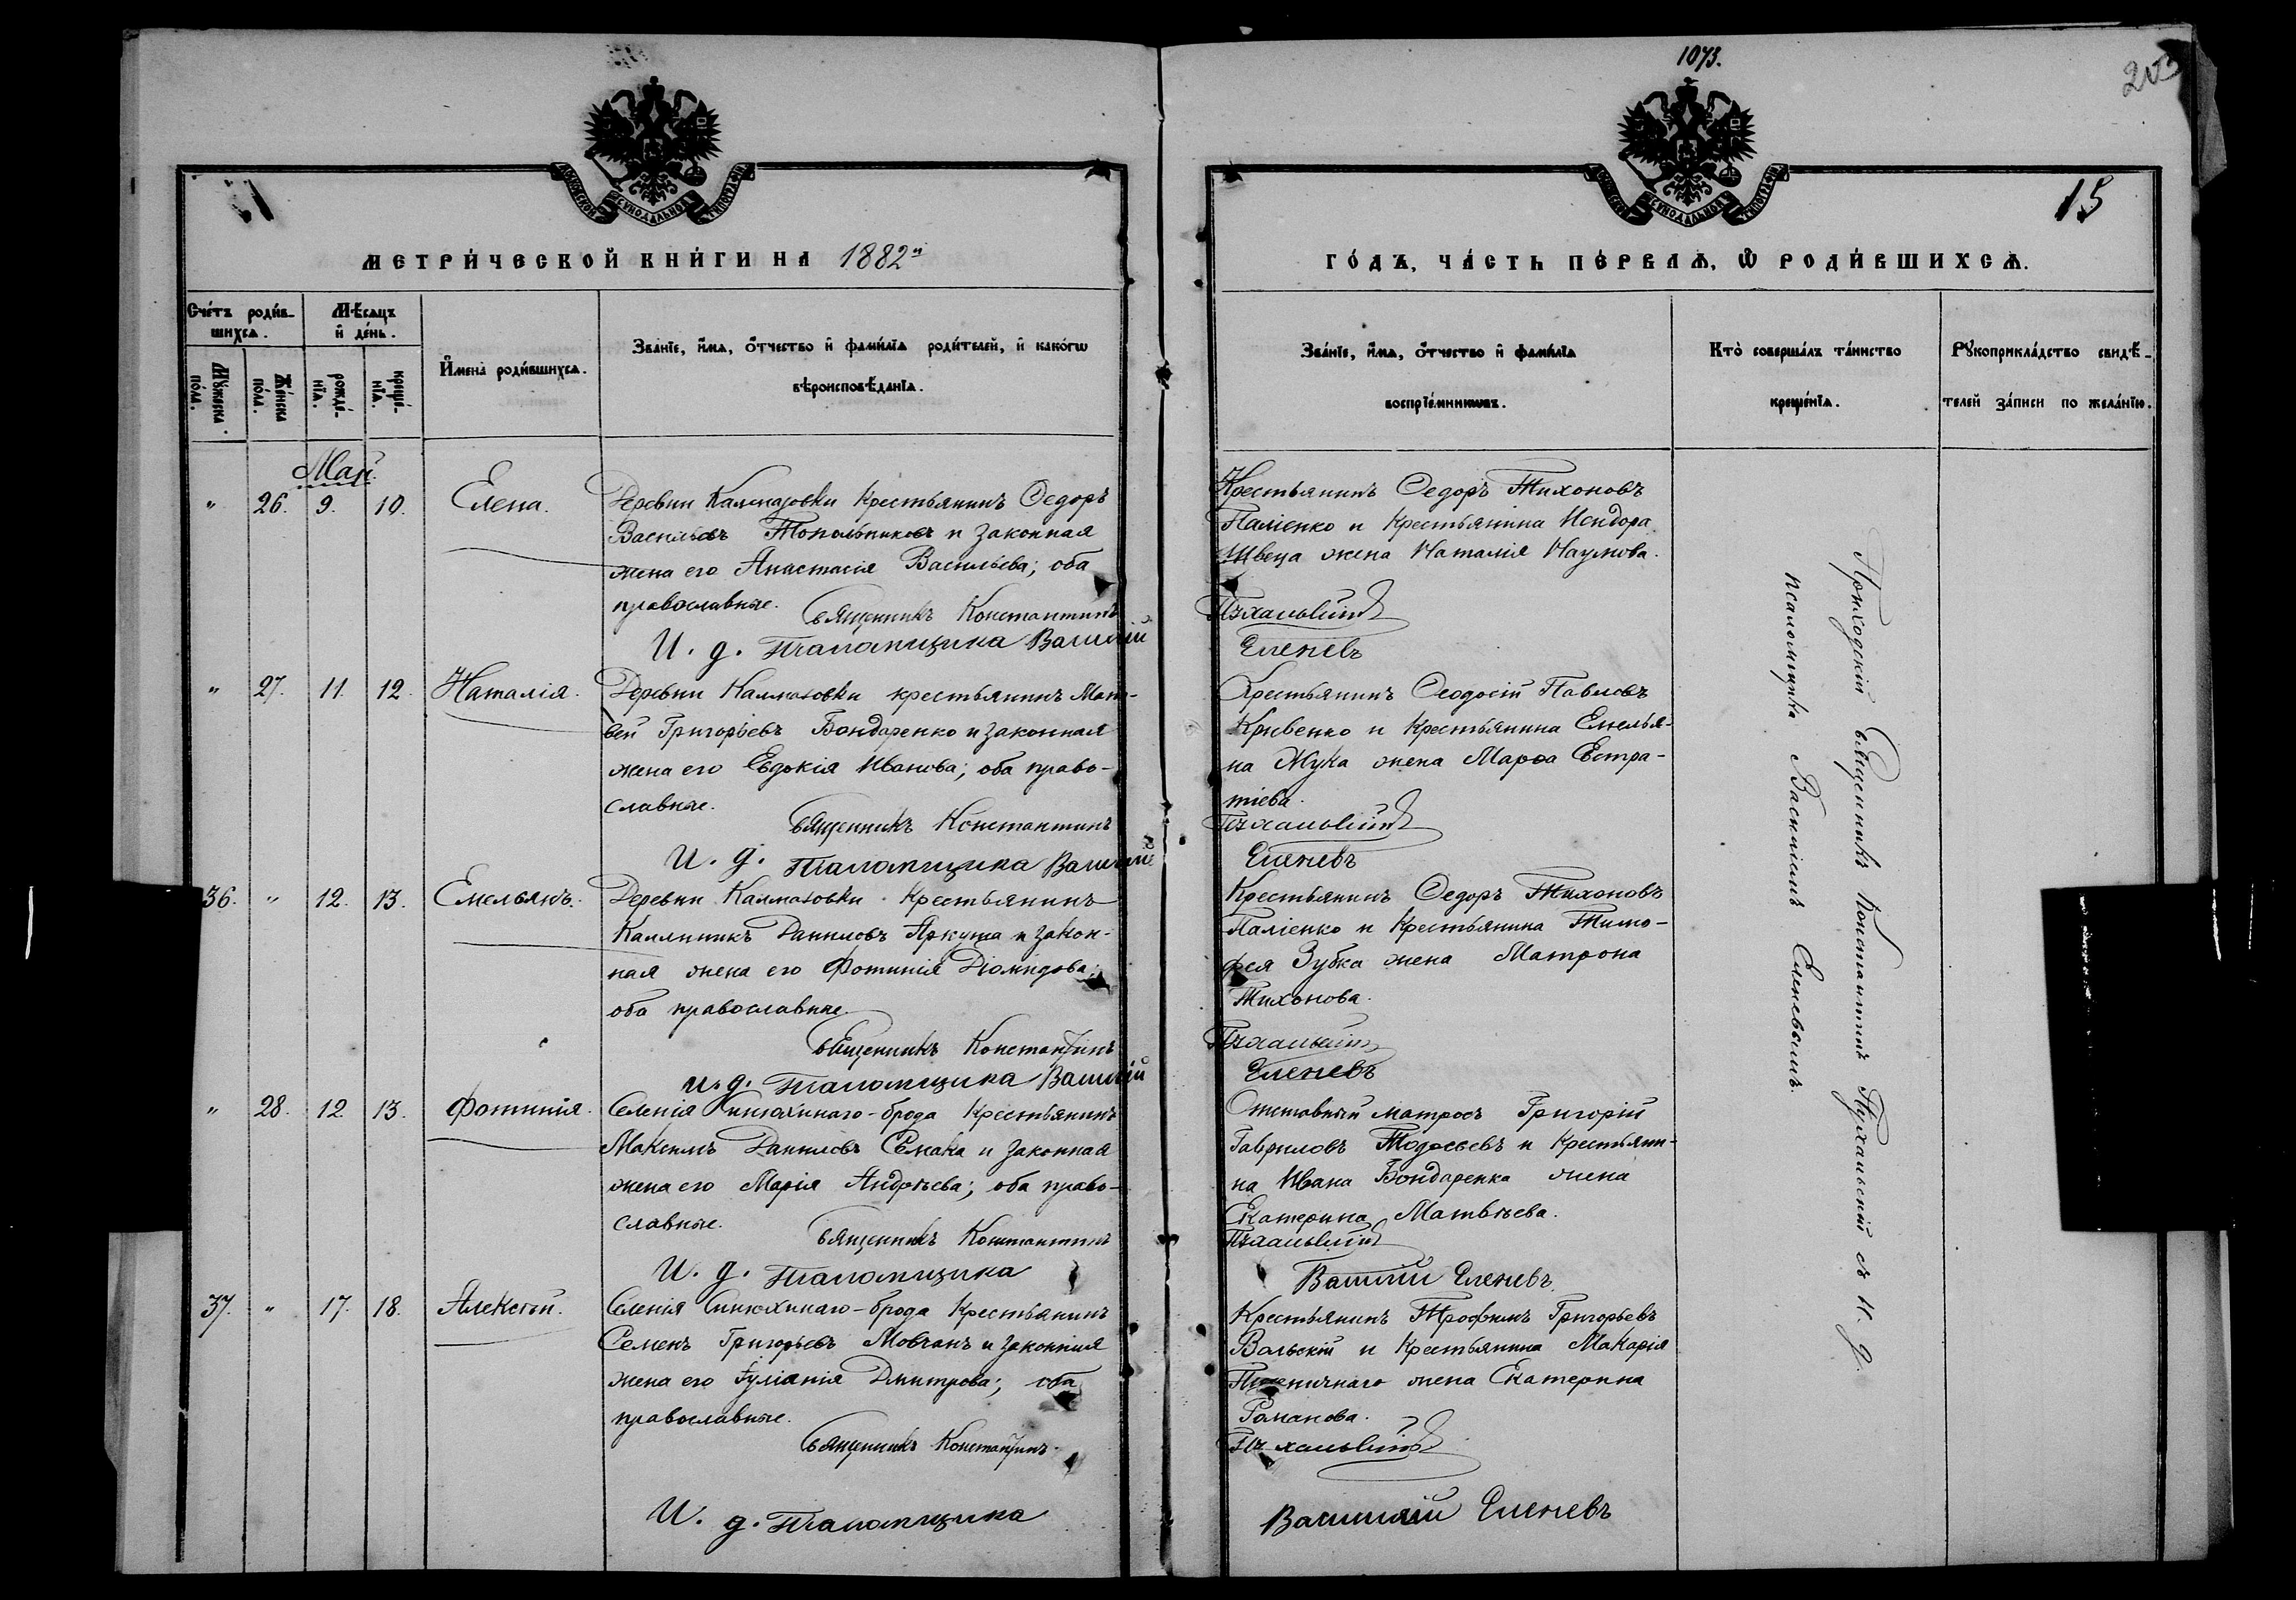 1073.
203
15
МЕТРИ́ЧЕСКОЙ КНИ́ГИ НА 1882й
ГО́ДЪ, ЧА́СТЬ ПЕ́РВАѦ, Ѡ҆ РОДИ́ВШИХСѦ.
Сче́тъ роди́в-
шихсѧ.
Мꙋ́жеска по́ла.
Же́нска по́ла.
Мѣ́сѧцъ
и҆ де́нь.
рожде́-
нїѧ.
креще́-
нїѧ.
И҆мена̀ роди́вшихсѧ.
Зва́нїе, и҆́мѧ, ѻ҆́тчество и҆ фами́лїѧ роди́телей, и҆ како́гѡ
вѣроисповѣ́данїѧ.
Зва́нїе, и҆́мѧ, ѻ҆́тчество и҆ фами́лїѧ
воспрїе́мникѡвъ.
Кто̀ соверша́лъ та́инство
креще́нїѧ.
Рꙋкоприкла́дство свидѣ́-
телей за́писи по жела́нїю.
Май.
" 26. 9. 10. Елена.
Деревни Калмазовки Крестьянинъ Ѳедоръ
Васильевъ Топольниковъ и законная
жена его Анастасія Васильева; оба
православные. Священникъ Константинъ
И. д. Псаломщика Василій
Крестьянинъ Ѳедоръ Тихоновъ
Паліенко и Крестьянина Исидора
Швеца жена Наталія Наумова.
Пухальскій
Еленевъ
" 27. 11. 12. Наталія.
Деревни Калмазовки крестьянинъ Мат-
вей Григорьевъ Бондаренко и законная
жена его Евдокія Иванова; оба право-
славные.
Священникъ Константинъ
И. д. Псаломщика Василій
Крестьянинъ Ѳеодосій Павловъ
Кривенко и Крестьянина Емелья-
на Жука жена Марѳа Евстра-
тіева.
Пухальскій
Еленевъ
36. " 12. 13. Емельянъ.
Деревни Калмазовки Крестьянинъ
Каллиникъ Даниловъ Яркуша и закон-
ная жена его Фотинія Діомидова;
оба православные.
Священникъ Константинъ
И. д. Псаломщика Василій
Крестьянинъ Ѳедоръ Тихоновъ
Паліенко и Крестьянина Тимо-
фея Зубка жена Матрона
Тихонова.
Пухальскій
Еленевъ
" 28. 12. 13. Фотинія.
Селенія Синюхинаго-брода Крестьянинъ
Максимъ Даниловъ Семака и законная
жена его Марія Андреева; оба право-
славные.
Священникъ Константинъ
И. д. Псаломщика
Отставный матросъ Григорій
Гавриловъ и Крестьяни-
на Ивана Бондаренка жена
Екатерина Матвѣева.
Пухальскій
Василій Еленевъ
37. " 17. 18. Алексѣй.
Селенія Синюхинаго-брода Крестьянинъ
Семенъ Григорьевъ Мовчанъ и законная
жена его Іуліанія Дмитрова; оба
православные.
Священникъ Константинъ
И. д. Псаломщика
Крестьянинъ Трофимъ Григорьевъ
Вольскій и Крестьянина Макарія
Пшеничнаго жена Екатерина
Романова.
Пухальскій
Василій Еленевъ
Приходскій Священникъ Константинъ Пухальскій съ И. д.
псаломщика Василіемъ Еленевымъ.